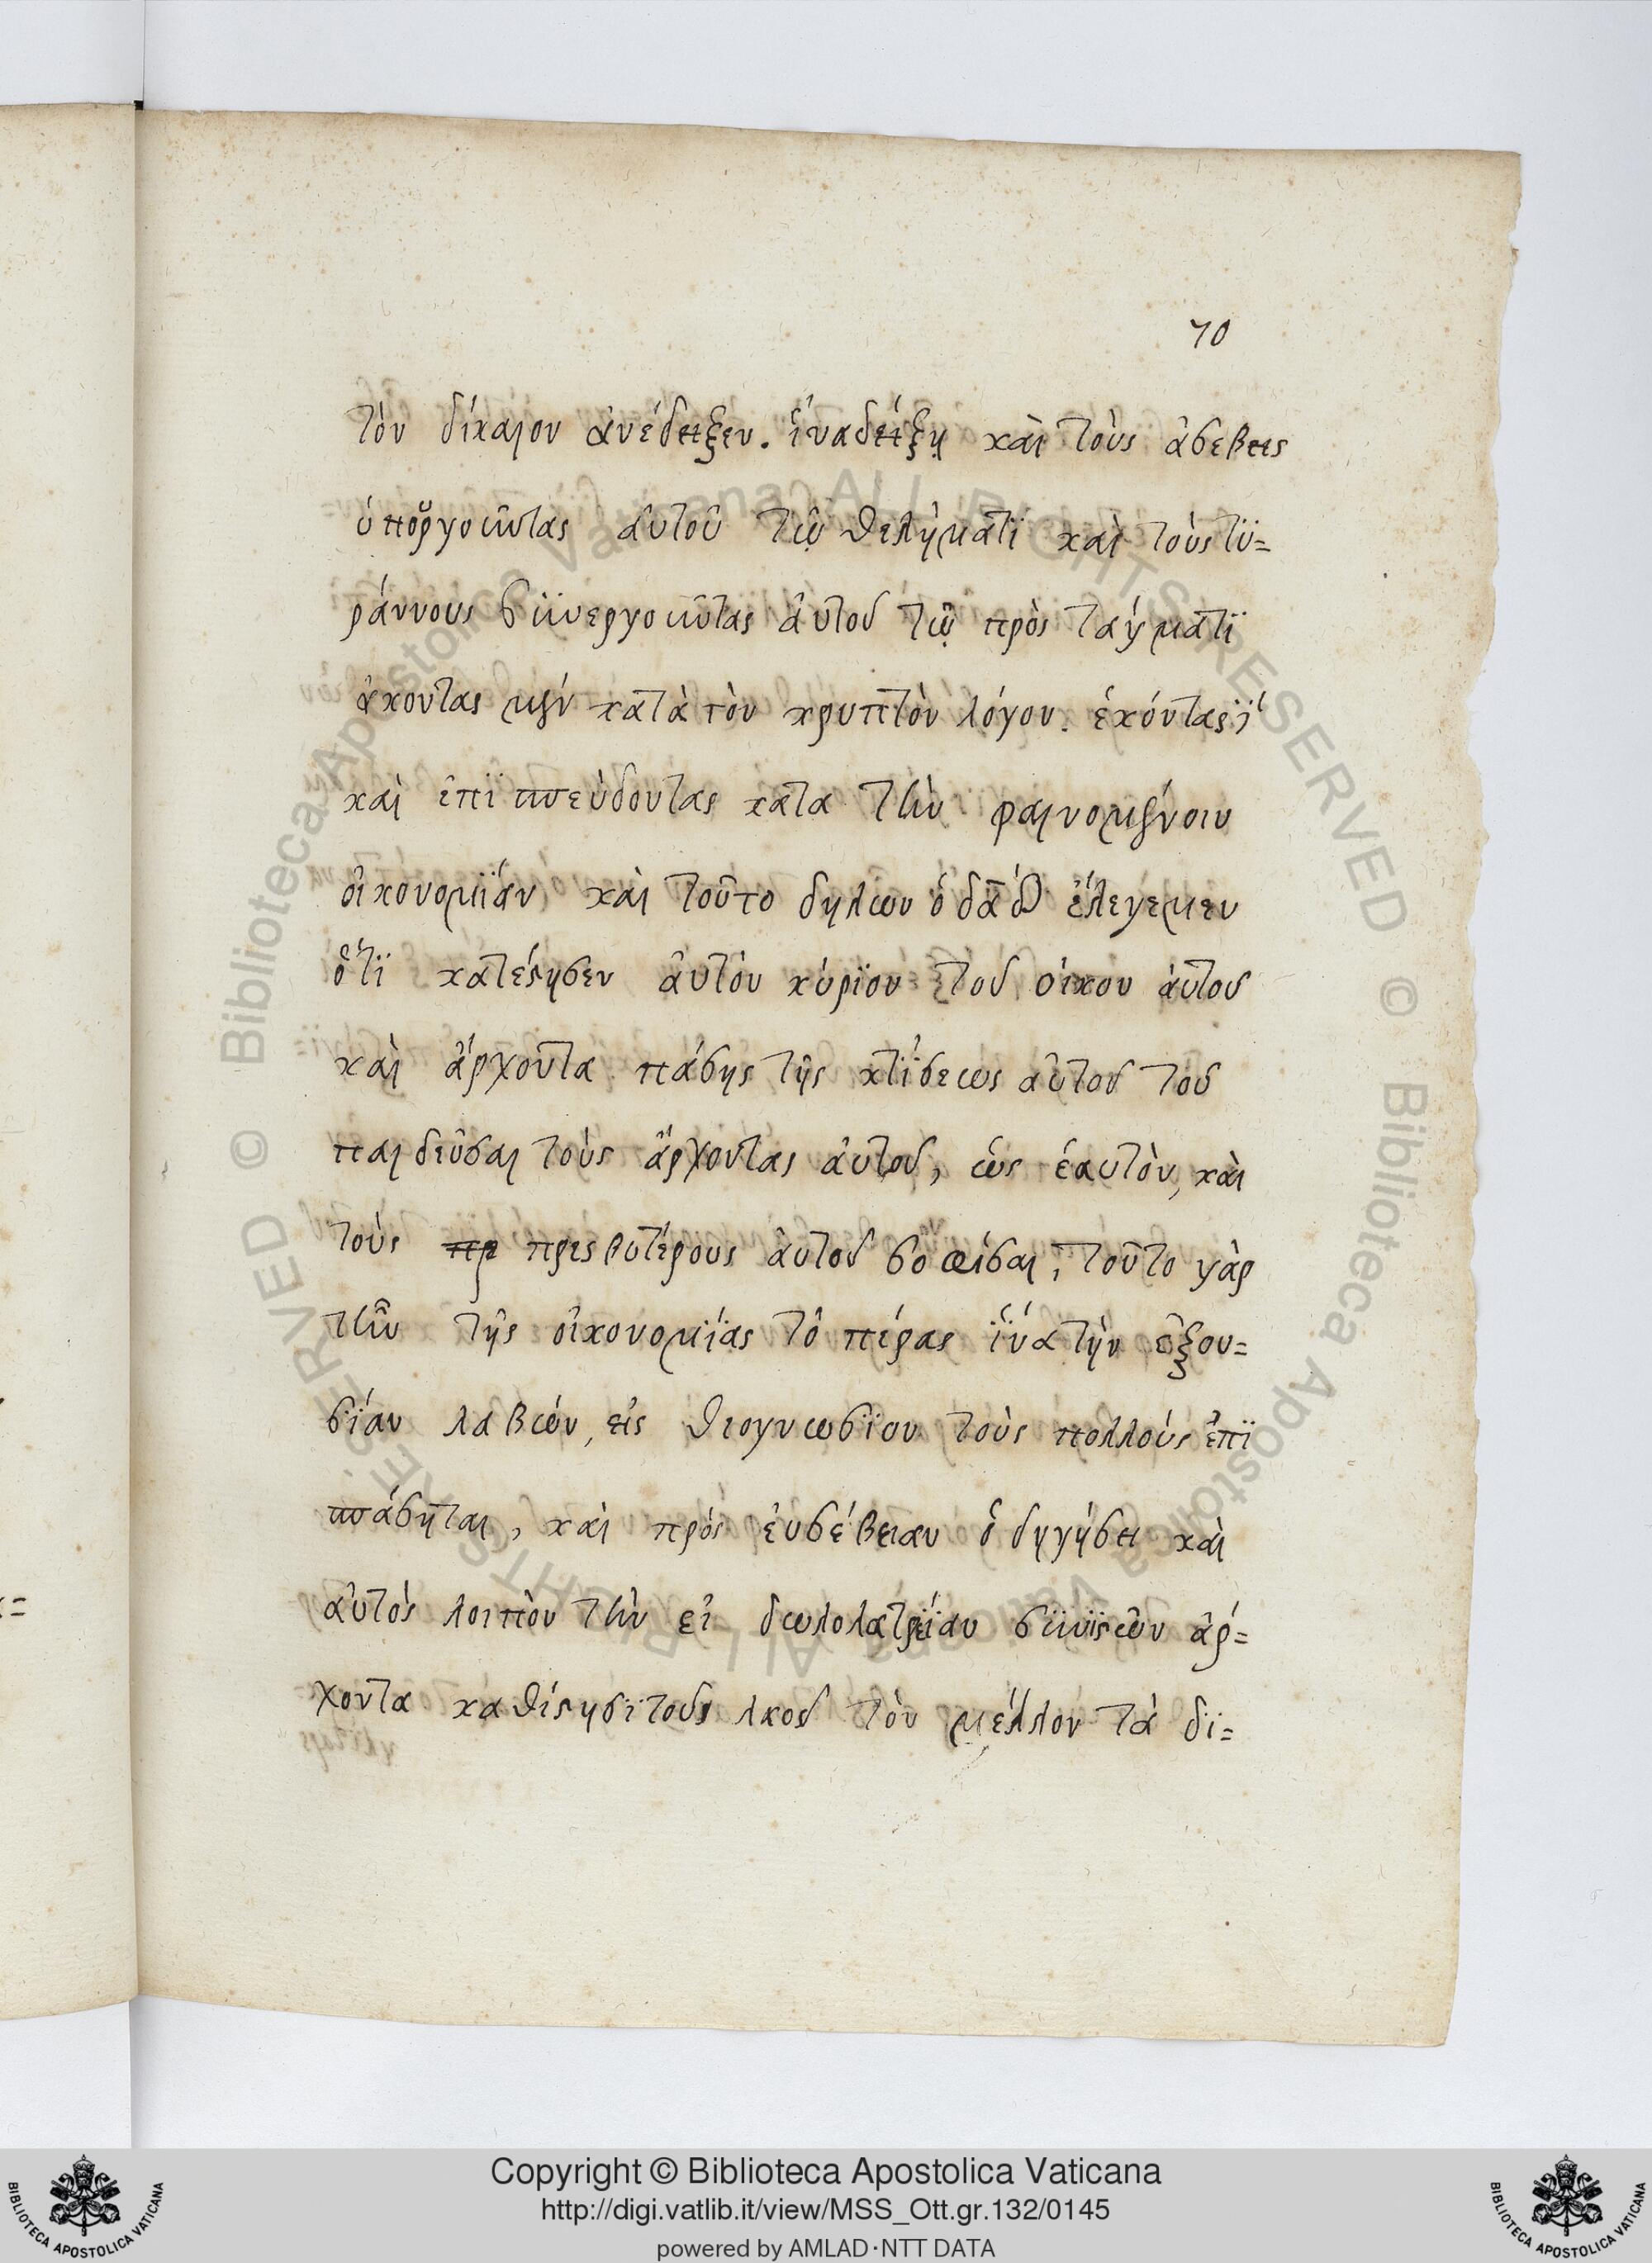 70
τὸν δίκαιον ἀνέδειξεν. ἵναδείξῃ καὶ τοὺς ἀσεβεις
ὑπουργοῦντας αὐτοῦ τῷ θελήματϊ καὶ τοὺς τϋ=
ράννους συνεργοῦντας αὐτοῦ τῷ πρὸς ταγματϊ
ἄκοντας μὲν κατὰ τὸν κρυπτὸν λόγον. ἑκόντας
καὶ ἐπϊ σπεὺδοντας κατα τὴν φαινομένοιν
οἰκονομΐαν καὶ τοῦτο δηλων ὁ δᾱδ ἔλεγεμεν
ὅτϊ κατέστησεν αὐτὸν κύρϊον τοῦ οἴκου αὐτοῦ
καὶ ἄρχοντα πάσης τῆς κτίσεως αὐτοῦ τοῦ
παιδεῦσαι τοὺς ἄρχοντας αὐτοῦ, ὡς ἑαυτὸν, καὶ
τοὺς πρ πρεσβυτέρους αὐτοῦ σοφίσαι, τοῦτο γὰρ
τῆν τῆς οἰκονομΐας τὸ πέρας ἵνα τὴν ἐξου=
σΐαν λαβὼν, εἰς θεογνωσϊαν τοὺς πολλοὺς ἐπϊ
σπάσηται, καὶ πρὸς ἐυσέβειαν ὁδηγήσει καὶ
αὐτὸς λοιπὸν τὴν εἰ δωλολατρείαν συνϊστῶν ἀρ=
χοντα καθίστησϊ τοῦ λαοῦ τὸν μέλλον τὰ δϊ=
Copyright © Biblioteca Apostolica Vaticana
http://digi.vatlib.it/view/MSS_Ott.gr.132/0145
powered by AMLAD·NTT DATA